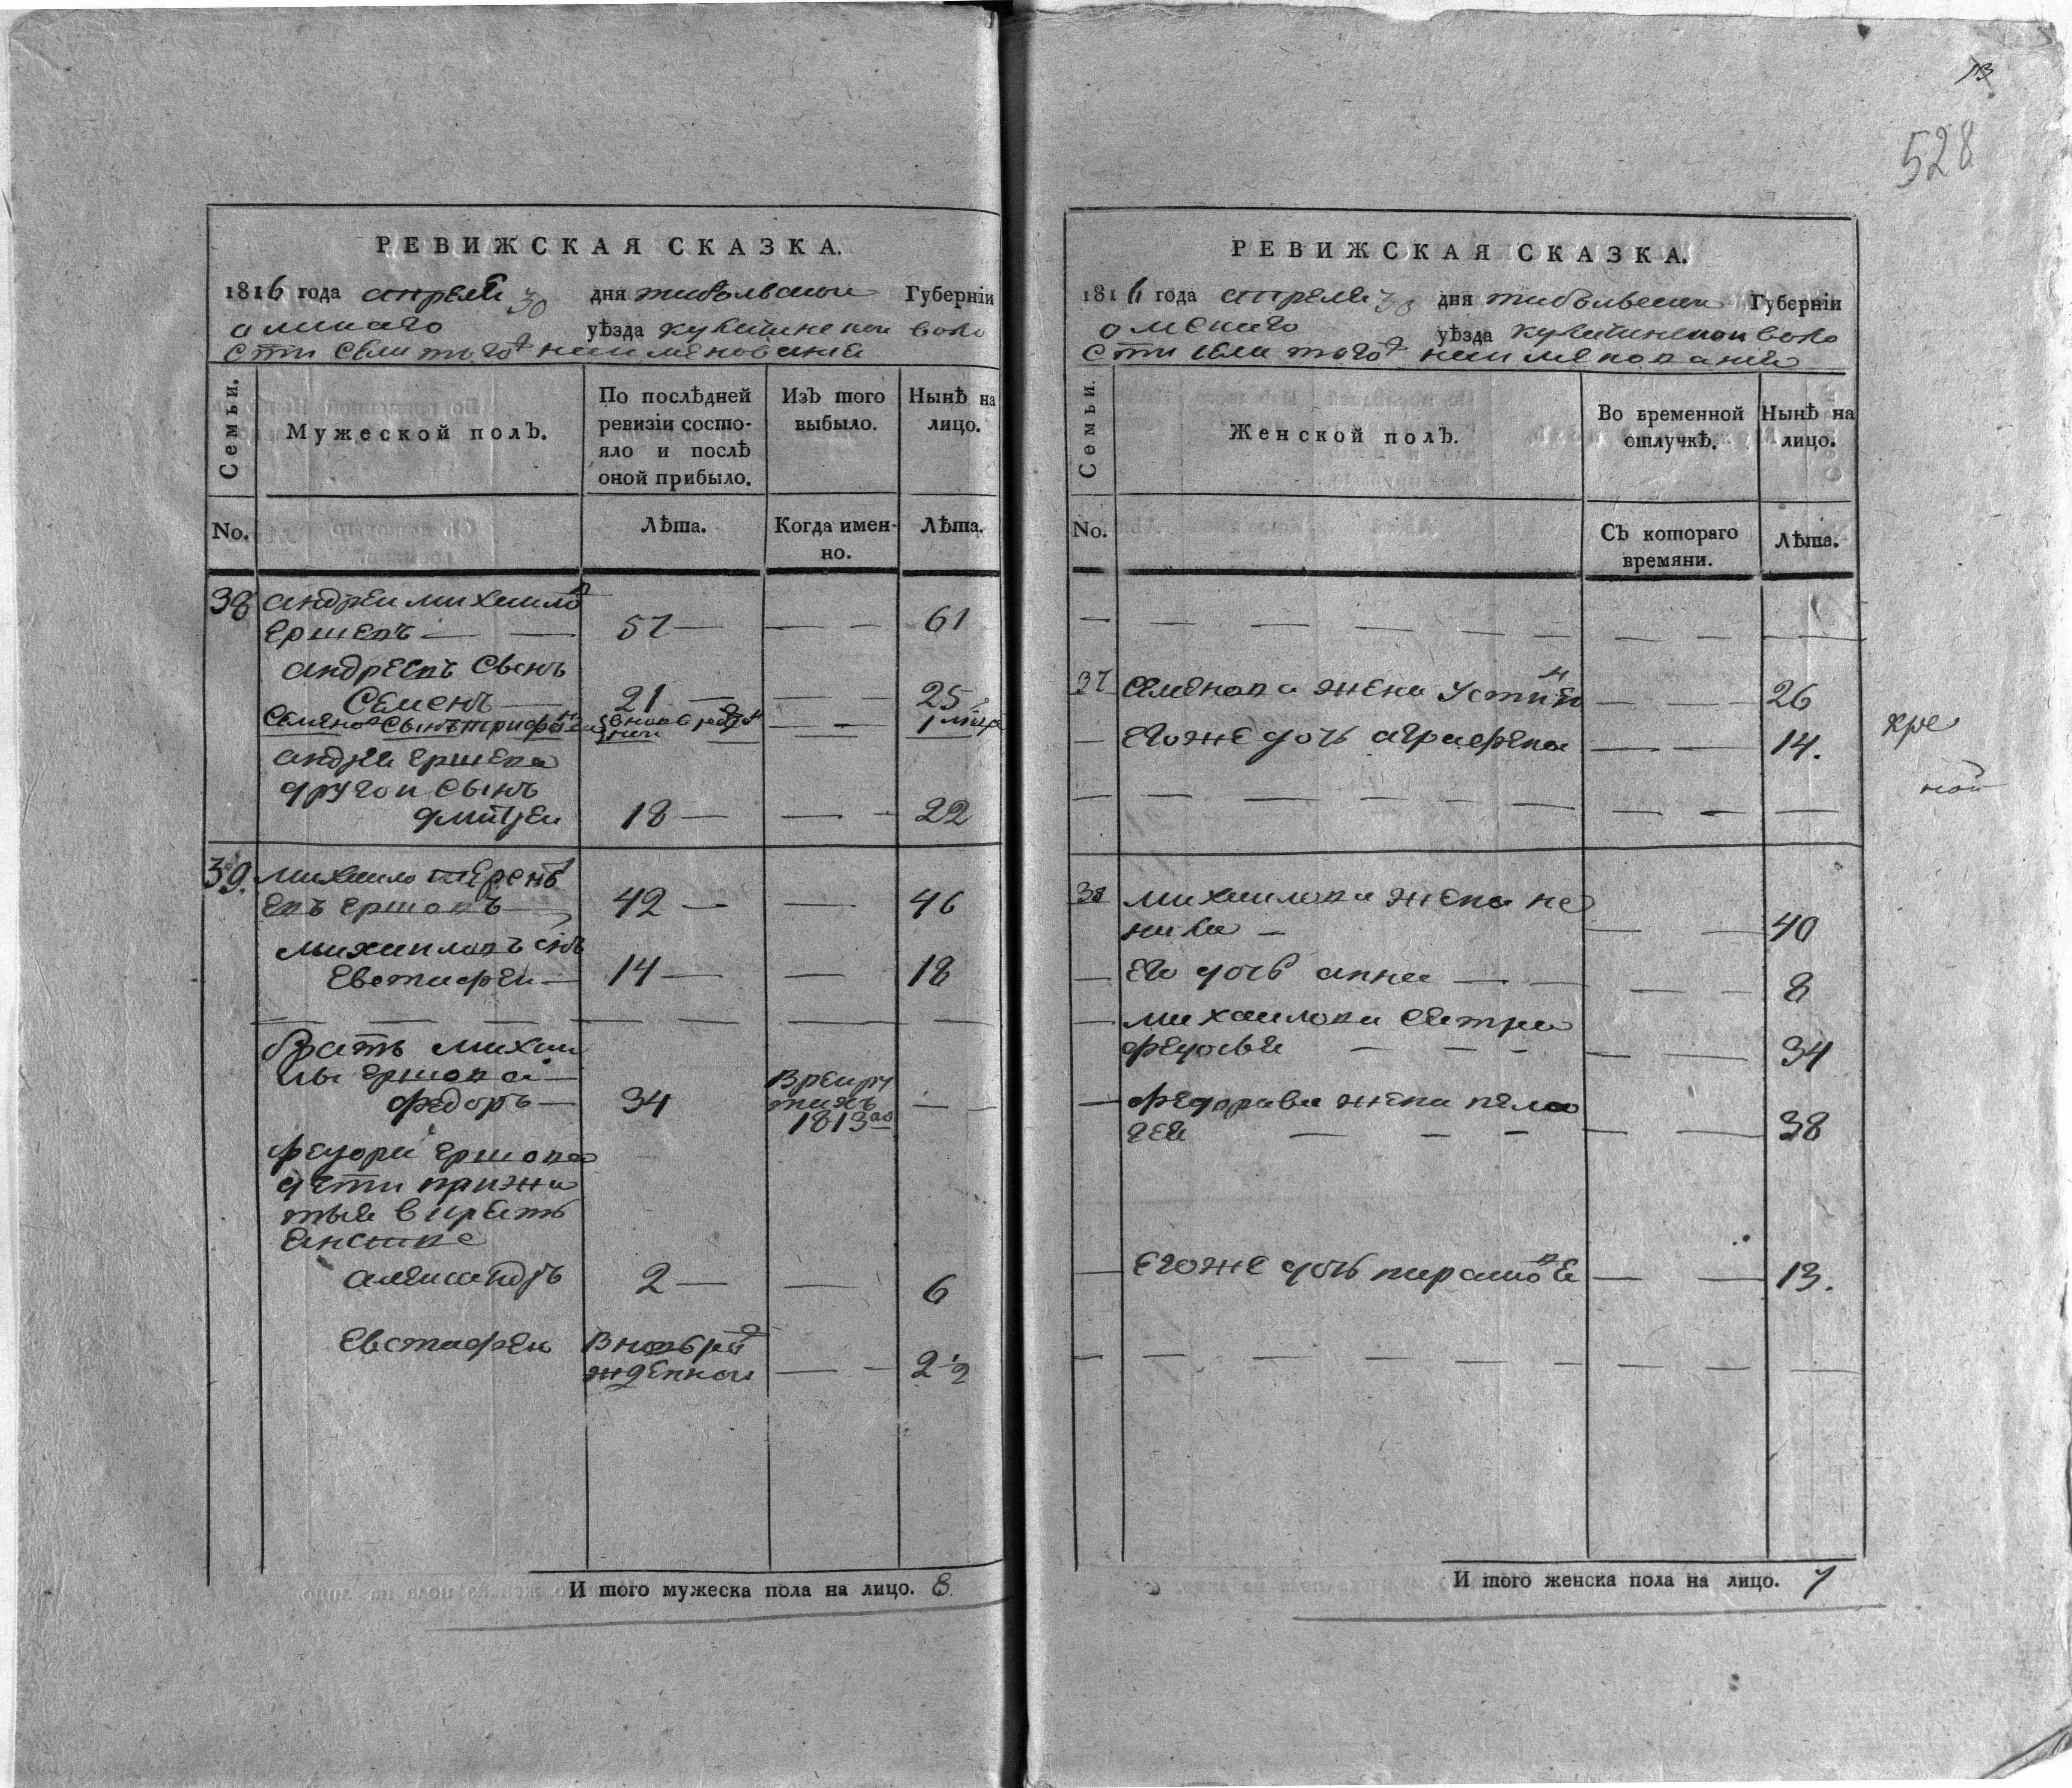 РЕВИЖСКАЯ СКАЗКА.
1816 года апреля 30 дня тобольской Губерніи
омскаго уѣзда кулачинской воло
сти села того наименованія
Семьи. Мужеской полЪ. По послѣдней ревизіи состо- ИзЪ того Нынѣ на
яло и послѣ выбыло. лицо.
оной прибыло.
No. Лѣта. Когда имен- Лѣта.
но.
38 андреи михаило
ершевъ — — 57 — — — 61
андреевъ сынъ
Семенъ — 21 — — 25
Семено сынъ трифо
андрея ершева
другои сынъ
дмитреи 18 — — — 22
39. михаило терень
евъ ершовъ — 42 — — 46
михаиловъ снъ
евстафеи — 14 — — 18
— — — — — — — —
братъ михаи
лы ершова —
федоръ — 34 в рекру — —
тахъ
1813го
федора ершова
дети прижи
тыя в
александръ 2 — — 6
евстафеи в новь ро
жденнои — — 2 1/2
И того мужеска пола на лицо. 8.
13
528
РЕВИЖСКАЯ СКАЗКА.
1816 года апреля 30 дня тобольскои Губерніи
омскаго уѣзда кулачинскои воло
сти села того наименованія
Семьи. Женской полЪ. Во временной Нынѣ на
отлучкѣ. лицо.
No. СЪ котораго Лѣта.
времяни.
— — — — — — — — — —
37 семенова жена устин — — — 26
— его же дочь аграфена — — 14.
— — — — — — — — —
38 михаилова жена не
нила — — — 40
— его дочь анна — — — — — 8
— михаилова сестра
федосья — — — — — 34
— федорава жена пела
гея — — — — — 38
— его же дочь парасков — — 13.
— — — — — — — — —
И того женска пола на лицо. 7